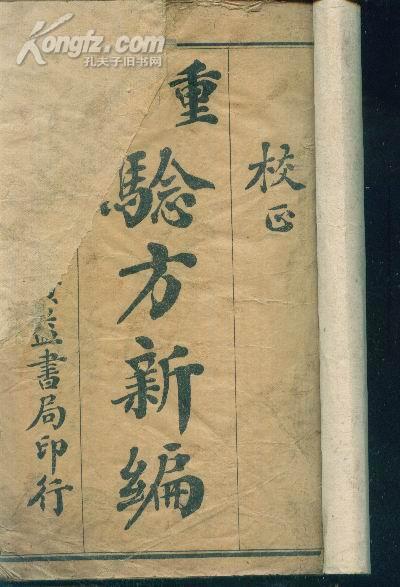 Kongfz.com
孔夫子旧书网
校正
重騐方新編
益書局印行